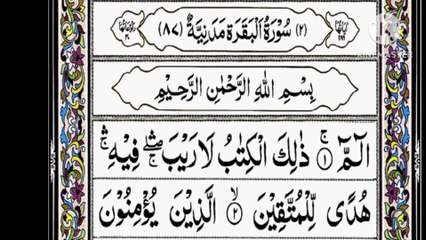 (٢) سُوْرَةُ الْبَقَرَةِ مَدَنِيَّةٌ (٨٧)
بِسْمِ اللهِ الرَّحْمٰنِ الرَّحِيْمِ
الٓمّٓ ۚ ١ ذٰلِكَ الْكِتٰبُ لَا رَيْبَ ۛۖ فِيْهِ ۛۚ
هُدًى لِّلْمُتَّقِيْنَ ۙ ٢ الَّذِيْنَ يُؤْمِنُوْنَ